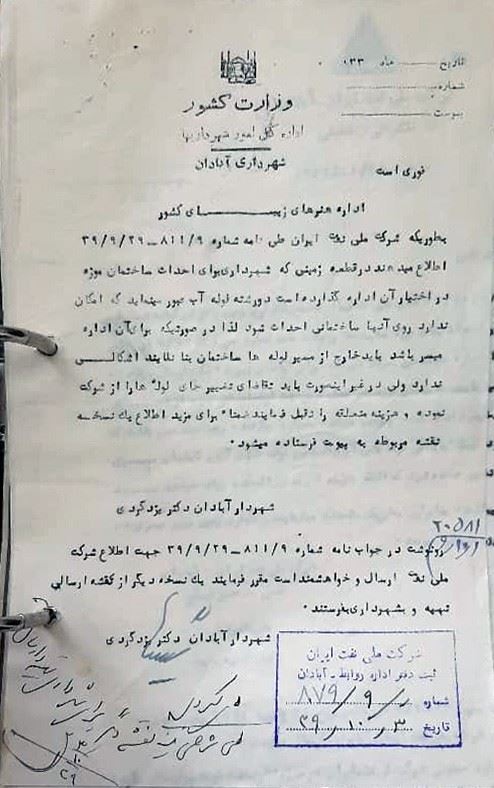 تاریخ ......... ماه ......... ۱۳۳
شماره .........
پیوست .........
وزارت کشور
اداره کل امور شهرداریها
شهرداری آبادان
فوری است
اداره هنرهای زیبـــــــای کشور
بطوریکه شرکت ملی نفت ایران طی نامه شماره ۸۱۱/۹ــ۳۹/۹/۲۹
اطلاع میدهند در قطعه زمینی که شهرداری برای احداث ساختمان موزه
در اختیار آن اداره گذارده است دو رشته لوله آب عبور مینماید که امکان
ندارد روی آنها ساختمانی احداث شود لذا در صورتیکه برای آن اداره
میسر باشد باید خارج از مسیر لوله ها ساختمان بنا نمایند اشکالـــی
ندارد ولی در غیر اینصورت باید تقاضای تغییر جای لوله ها را از شرکت
نموده و هزینه متعلقه را تقبل فرمایند ضمنا" برای مزید اطلاع یک نسخـه
نقشه مربوطه به پیوست فرستاده میشود۰
شهردار آبادان دکتر یزدگردی
۲۰۵۸۱
رونوشت در جواب نامه شماره ۸۱۱/۹ــ۳۹/۹/۲۹ جهت اطلاع شرکت
ملی نفت ارسال و خواهشمند است مقرر فرمایند یک نسخه دیگر از نقشه ارسالی
تهیه و بشهرداری بفرستند۰
شهردار آبادان دکتر یزدگردی
شرکت ملی نفت ایران
ثبت دفتر اداره روابط ــ آبادان
شماره ۸۷۹/۹/۱
تاریخ ۳۹ـ۱۰ـ۳